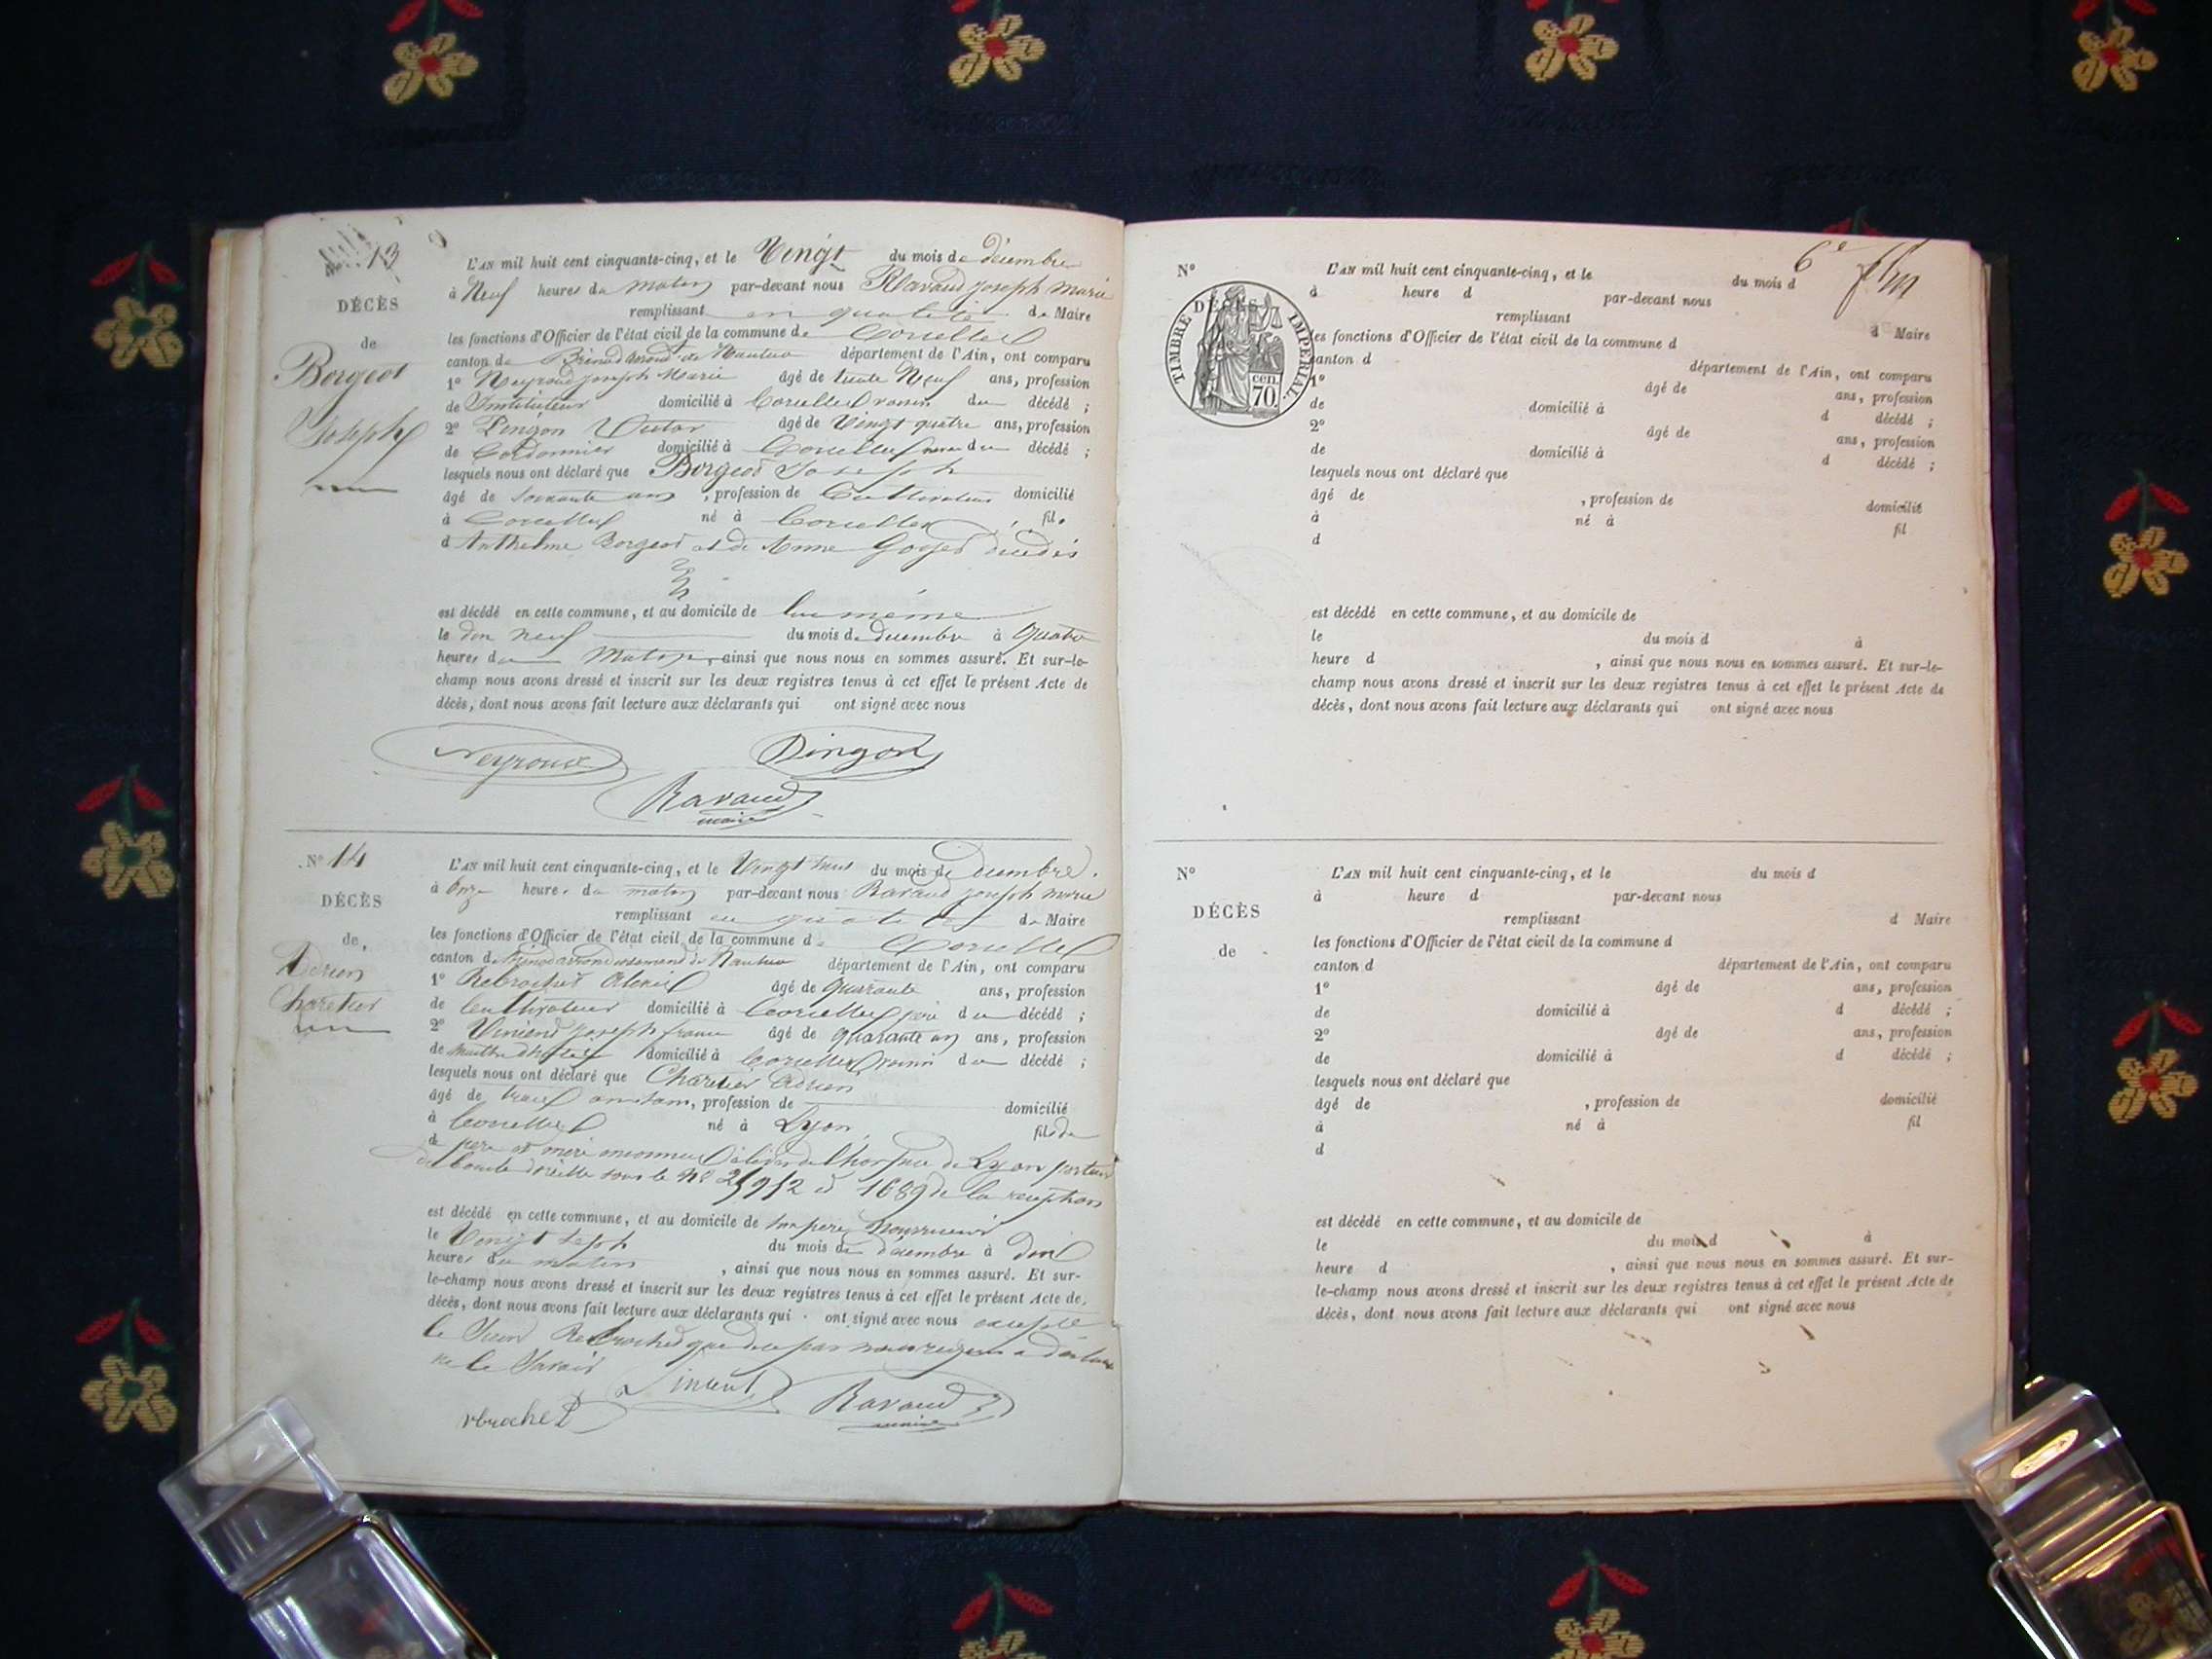 13
DÉCÈS
de
Borgeot
Joseph
L'AN mil huit cent cinquante-cinq, et le Vingt du mois de décembre
à Neuf heures du matin par-devant nous Ravaud joseph marie
remplissant en qualité de Maire
les fonctions d'Officier de l'état civil de la commune de Corcelles
canton de Brénod de Nantua département de l'Ain, ont comparu
1º Neyroud joseph Marie âgé de trente Neuf ans, profession
de Instituteur domicilié à Corcelles voisin du décédé ;
2º Pingon Victor âgé de Vingt quatre ans, profession
de Cordonnier domicilié à Corcelles du décédé ;
lesquels nous ont déclaré que Borgeot Joseph
âgé de soixante ans, profession de Cultivateur domicilié
à Corcelles né à Corcelles, fils
d Anthelme Borgeot et de Anne décédés
est décédé en cette commune, et au domicile de lui même
le dix neuf du mois de decembre à quatre
heures du Matin, ainsi que nous nous en sommes assuré. Et sur-le-
champ nous avons dressé et inscrit sur les deux registres tenus à cet effet le présent Acte de
décès, dont nous avons fait lecture aux déclarants qui ont signé avec nous
Neyroud Pingon
Ravaud
maire
Nº 14
DÉCÈS
de
Adrien
Charetier
L'AN mil huit cent cinquante-cinq, et le Vingt huit du mois de decembre.
à Onze heures du matin par-devant nous Ravaud joseph marie
remplissant en qualité de Maire
les fonctions d'Officier de l'état civil de la commune de Corcelles
canton de Brénod arrondissement de Nantua département de l'Ain, ont comparu
1º Rebrochet Alexis âgé de quarante ans, profession
de Cultivateur domicilié à Corcelles du décédé ;
2º joseph âgé de quarante un ans, profession
de domicilié à Corcelles voisin du décédé ;
lesquels nous ont déclaré que Adrien
âgé de trois, profession de domicilié
à Corcelles né à Lyon fils de
de pere et mère inconnus de Lyon
sous le Nº et 1689 de la reception
est décédé en cette commune, et au domicile de son pere Nourricier
le Vingt Sept du mois de decembre à dix
heures du matin, ainsi que nous nous en sommes assuré. Et sur-
le-champ nous avons dressé et inscrit sur les deux registres tenus à cet effet le présent Acte de
décès, dont nous avons fait lecture aux déclarants qui ont signé avec nous excepté
le Rebrochet que
ne le Savoir
rbrochet Ravaud
maire
6e
Nº
TIMBRE IMPERIAL
cen.
70.
DÉCÈS
L'AN mil huit cent cinquante-cinq, et le du mois d
à heure d par-devant nous
remplissant d Maire
les fonctions d'Officier de l'état civil de la commune d
canton d département de l'Ain, ont comparu
1º âgé de ans, profession
de domicilié à d décédé ;
2º âgé de ans, profession
de domicilié à d décédé ;
lesquels nous ont déclaré que
âgé de , profession de domicilié
à né à fil
d
est décédé en cette commune, et au domicile de
le du mois d à
heure d , ainsi que nous nous en sommes assuré. Et sur-le-
champ nous avons dressé et inscrit sur les deux registres tenus à cet effet le présent Acte de
décès, dont nous avons fait lecture aux déclarants qui ont signé avec nous
Nº
DÉCÈS
de
L'AN mil huit cent cinquante-cinq, et le du mois d
à heure d par-devant nous
remplissant d Maire
les fonctions d'Officier de l'état civil de la commune d
canton d département de l'Ain, ont comparu
1º âgé de ans, profession
de domicilié à d décédé ;
2º âgé de ans, profession
de domicilié à d décédé ;
lesquels nous ont déclaré que
âgé de , profession de domicilié
à né à fil
d
est décédé en cette commune, et au domicile de
le du mois d à
heure d , ainsi que nous nous en sommes assuré. Et sur-
le-champ nous avons dressé et inscrit sur les deux registres tenus à cet effet le présent Acte de
décès, dont nous avons fait lecture aux déclarants qui ont signé avec nous